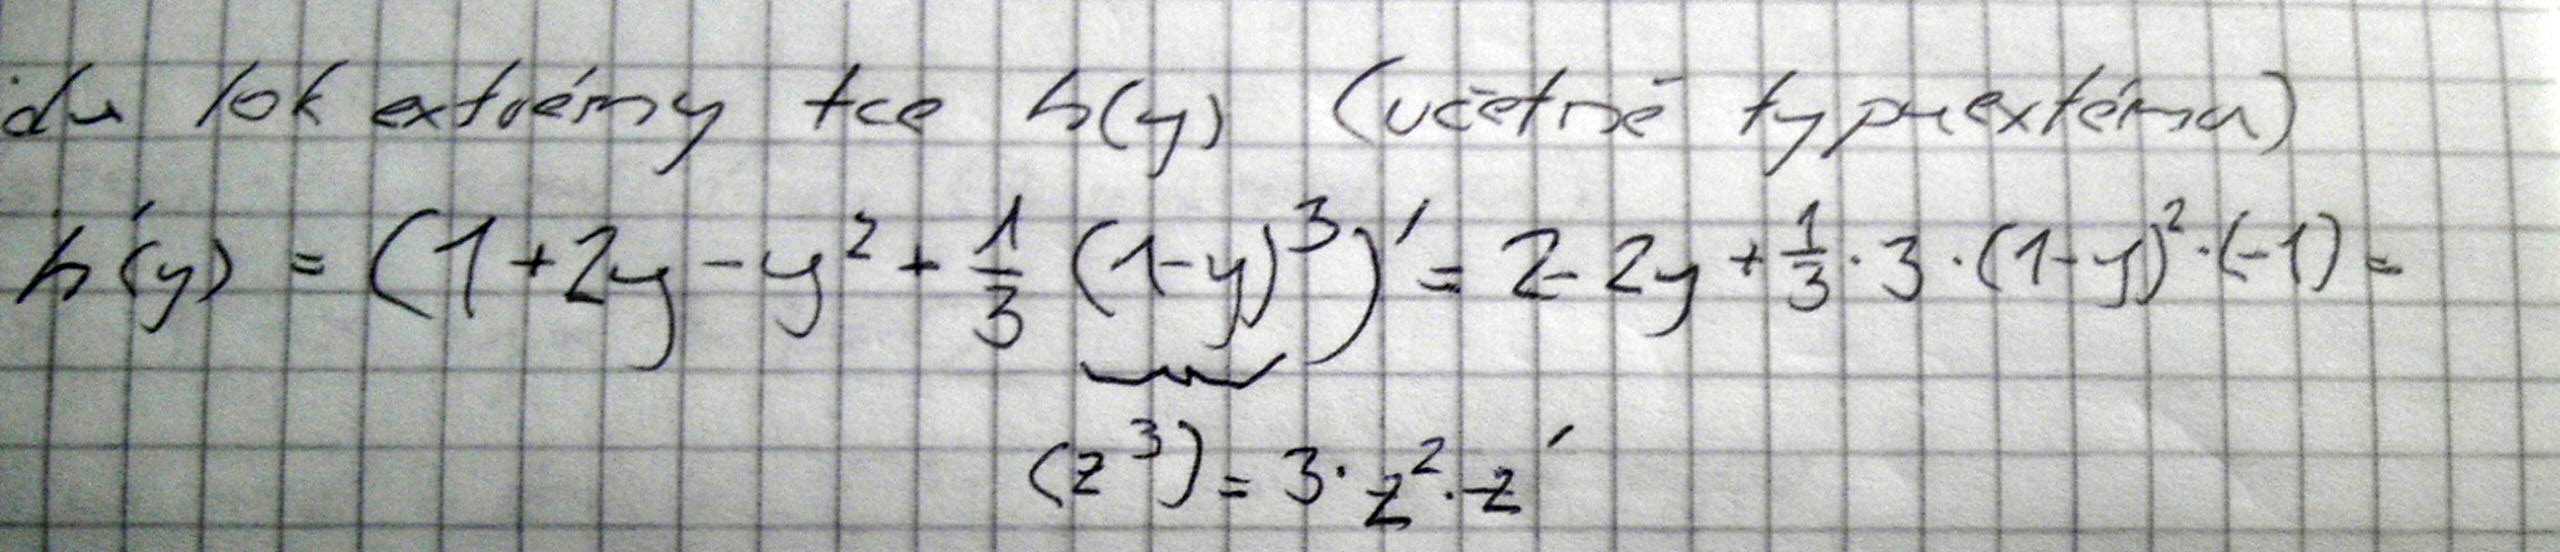 idu lok extrémy fce h(y) (včetně typu extéma)
h'(y) = (1+2y-y²+\frac{1}{3}(1-y)³)' = 2-2y+\frac{1}{3}·3·(1-y)²·(-1)=
(z³)=3·z²·z'